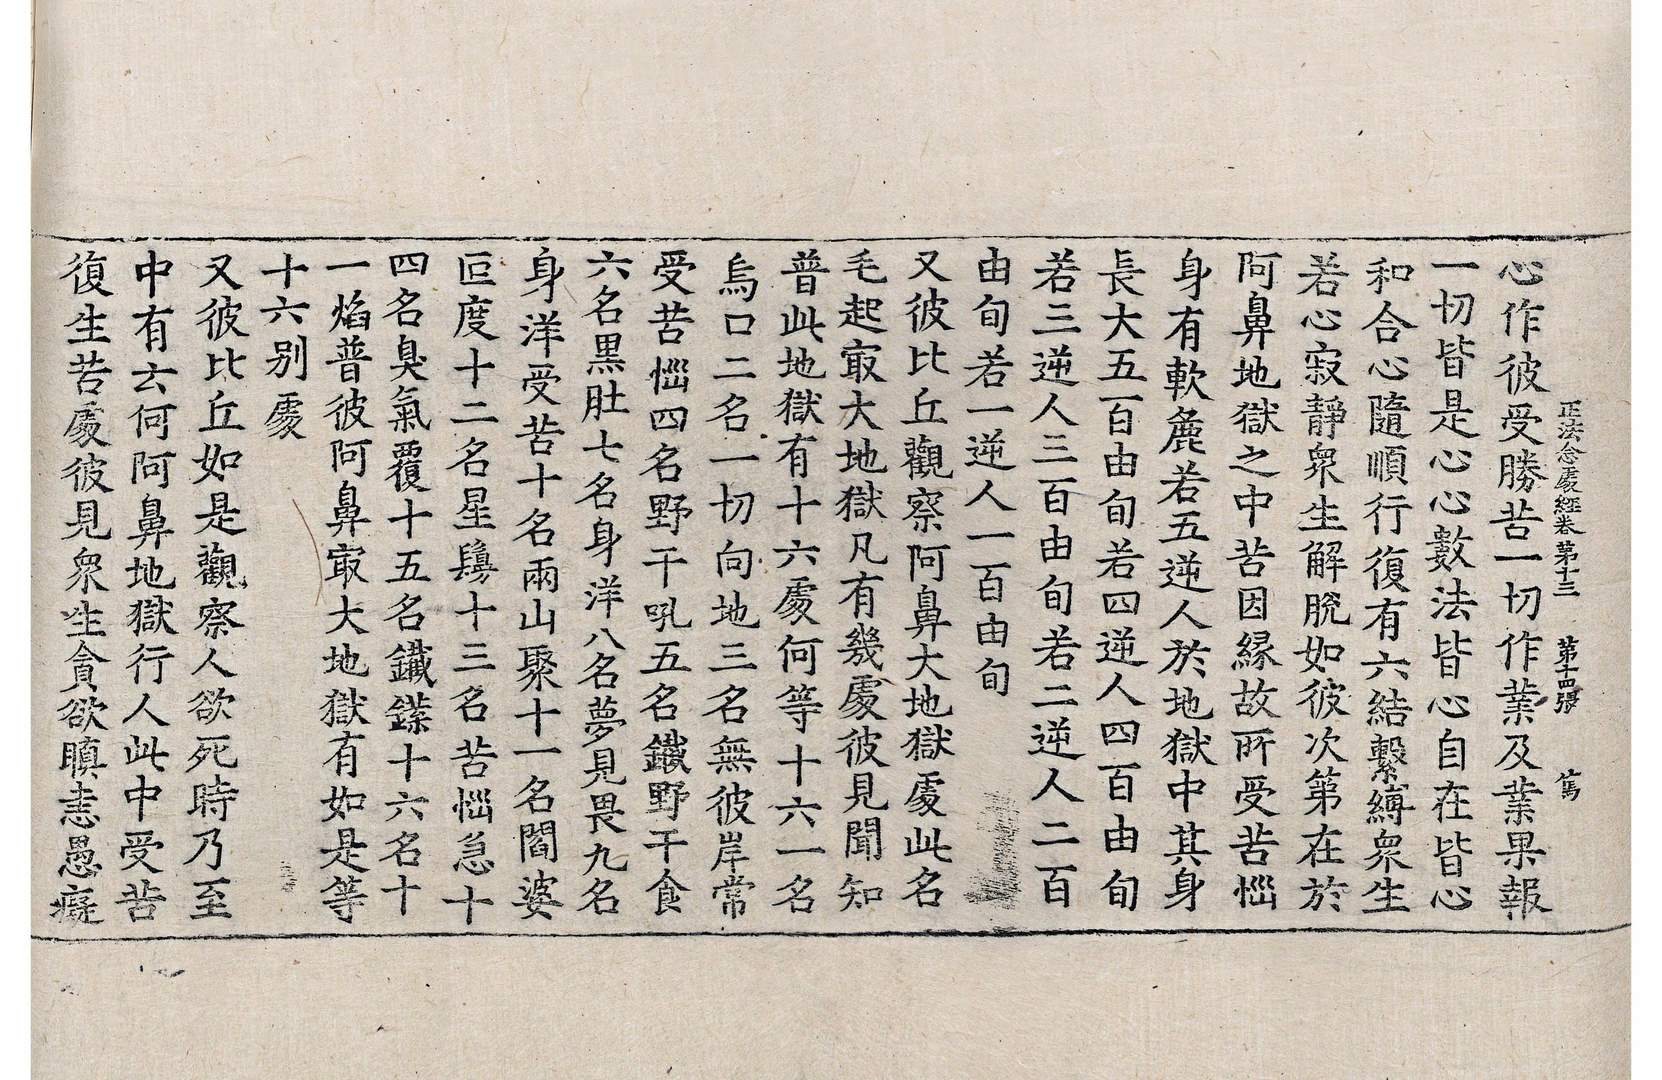 正法念處經卷第十三 第十四張 篤
心作彼受勝苦一切作業及業果報
一切皆是心心數法皆心自在皆心
和合心隨順行復有六結繫縛衆生
若心寂靜衆生解脫如彼次第在於
阿鼻地獄之中苦因緣故所受苦惱
身有軟麁若五逆人於地獄中其身
長大五百由旬若四逆人四百由旬
若三逆人三百由旬若二逆人二百
由旬若一逆人一百由旬
又彼比丘觀察阿鼻大地獄處此名
毛起㝡大地獄凡有幾處彼見聞知
普此地獄有十六處何等十六一名
烏口二名一切向地三名無彼岸常
受苦惱四名野干吼五名鐵野干食
六名黑肚七名身洋八名夢見畏九名
身洋受苦十名兩山聚十一名閻婆
叵度十二名星鬘十三名苦惱急十
四名臭氣覆十五名鐵鍱十六名十
一焰普彼阿鼻㝡大地獄有如是等
十六别處
又彼比丘如是觀察人欲死時乃至
中有云何阿鼻地獄行人此中受苦
復生苦處彼見衆生貪欲瞋恚愚癡